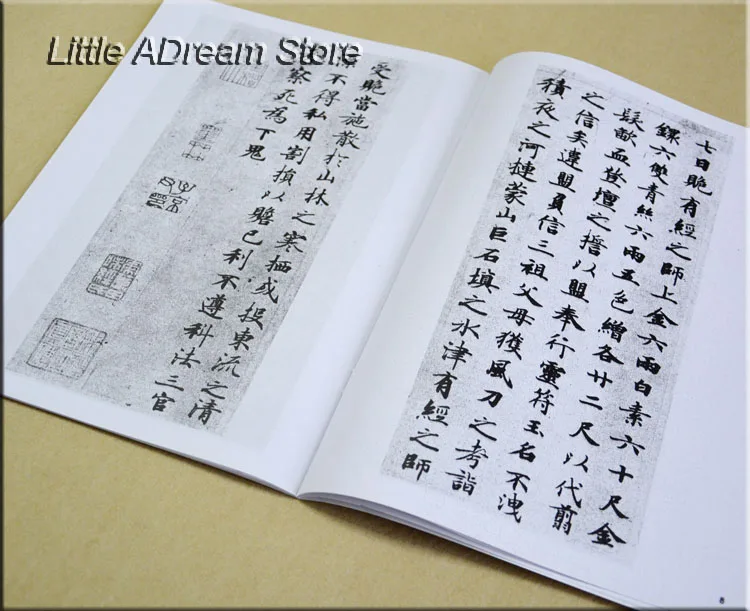 Little ADream Store
七日貺有經之師上金六兩白素六十尺金
鐶六雙青絲六兩五色繒各廿二尺以代翦
髮歃血登壇之擔以盟奉行靈符玉名不洩
之信矣違盟負信三祖父母獲風刀之考詣
積夜之河摙蒙山巨石填之水津有經之師
受貺當施散於山林之寒栖或投東流之清
不得私用割損以贍己利不遵科法三官
察死為下鬼
8